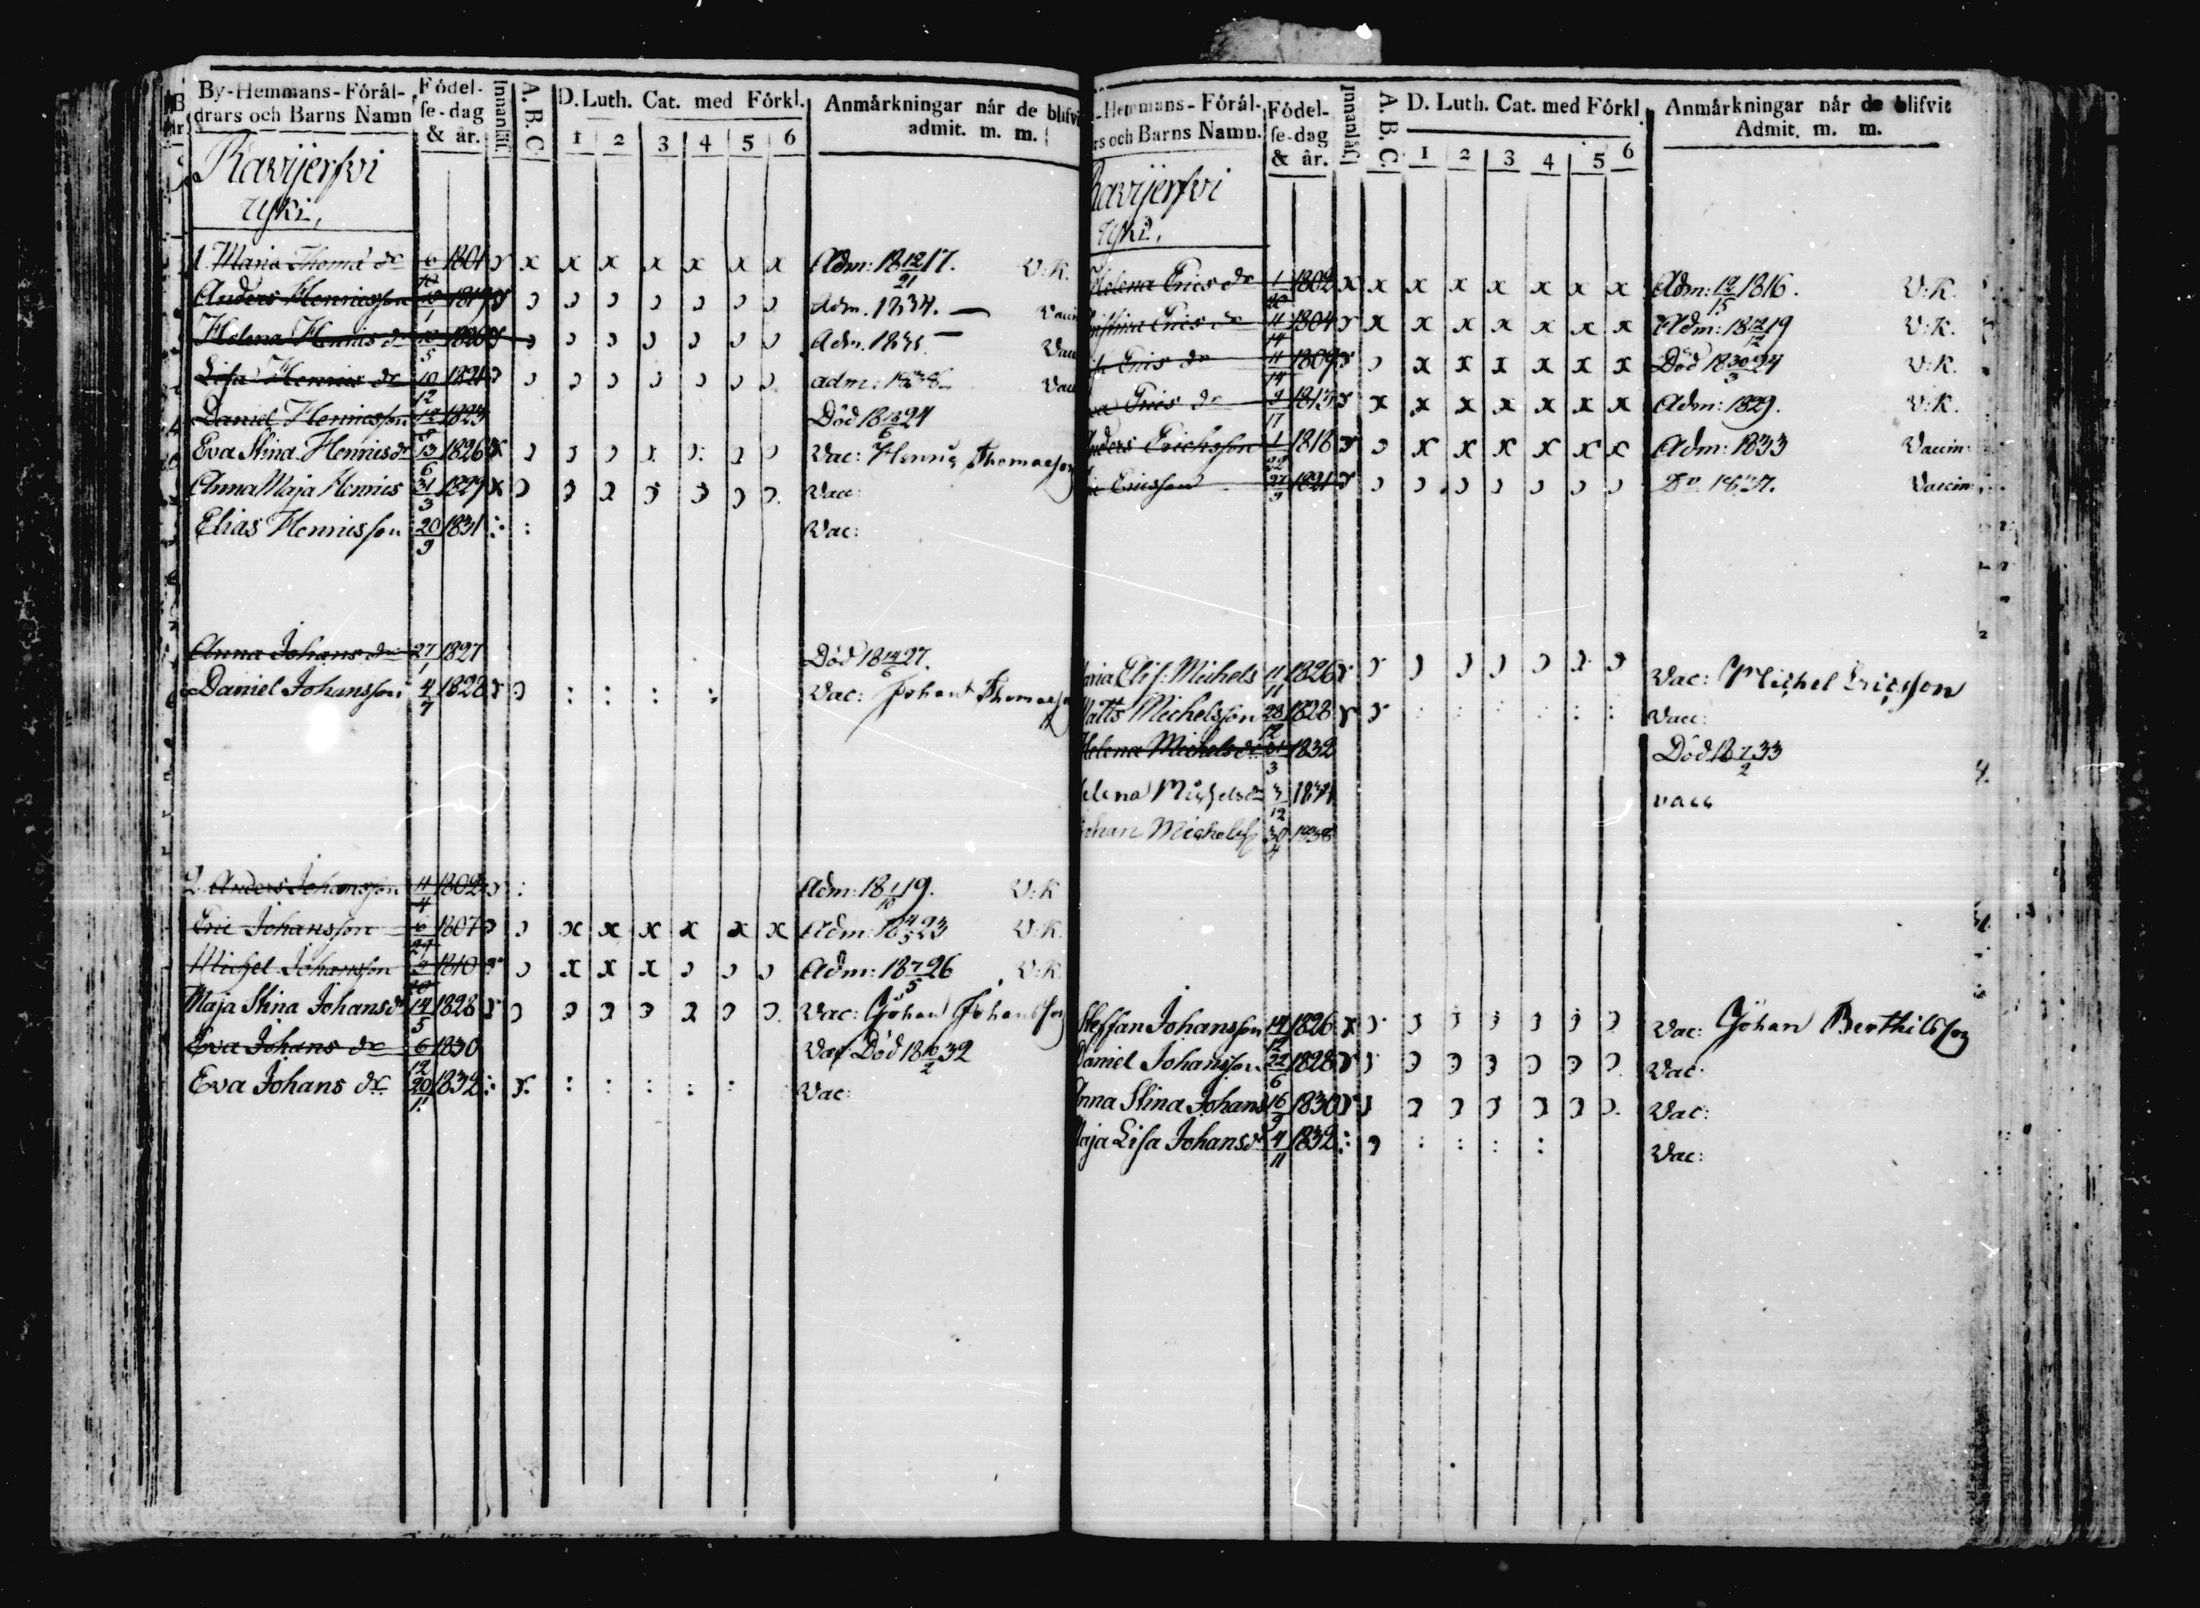 By-Hemmans-Förål-
drars och Barns Namn
Födel-
se-dag
& år.
Innanläs.
A. B. C.
D. Luth. Cat. med Förkl.
1 2 3 4 5 6
Anmårkningar når de blifvi
admit. m. m.
Ravijerfvi
1. Maria Thomæ dr 6/12 1801 x x x x x x x Adm: 18 12/21 17. V:K.
Anders Henricsson Adm. 1834. — Vacc
Helena Henrics dr 1820 Adm. 1835. — Vacc
Lisa Henrics dr 10/12 1821 adm: 1838 Vacc
Daniel Henricsson 1823 Död 18 24
Eva Stina Henricsdr 13/6 1826 Vac: Henric Thomasson
Anna Maja Henrics 31/3 1829 Vac:
Elias Henricsson 20/9 1831 : : Vac:
Anna Johans dr 27/1 1827 Död 18 14/6 27.
Daniel Johansson 4/7 1828 : : : : Vac: Johan Thomasso
2. Anders Johansson 11/4 1802 : Adm: 18 1/10 19. V:K
Eric Johansson 6/27 1807 x x x x x x Adm: 18 4/5 23 V:K.
Michel Johansson 1810 x x x Adm: 18 7/5 26 V:K.
Maja Stina Johansdr 14/5 1828 Vac: Johan Johansson
Eva Johans dr 6/12 1830 Vac Död 18 10/2 32
Eva Johans dr 20/11 1832 : : : : : : Vac:
-Hemmans-Förål-
rs och Barns Namn.
Födel-
se-dag
& år.
Innanläs.
A. B. C.
D. Luth. Cat. med Förkl.
1 2 3 4 5 6
Anmårkningar når de blifvit
Admit. m. m.
Ravijerfvi
Helena Erics dr 1802 x x x x x x x x Adm: 12/15 1816. V:K.
Erics dr 11/14 1804 x x x x x x x Adm: 18 12/12 19 V:K.
Erics dr 11/14 1809 x x x x x x Död 18 30/3 24 V:K.
Erics dr 9/17 1813 x x x x x x x Adm: 1829. V:K.
Anders Erichsson 1818 x x x x x x Adm: 1833 Vaccin:
Ericsson 27/9 1821 Do 1837. Vaccin:
aria Elis. Michels 11/11 1826 Vac: Michel Ericsson
Matts Michelsson 28/12 1828 : : : : : : Vac:
Helena Michelsdr 31/3 1832 Död 18 7/2 33
elena Michelsdr 3/12 1834 vacc
ohan Michelss 30/4 1838
Steffan Johansson 14/12 1826 Vac: Johan Berthilsson
Daniel Johansson 22/6 1828 Vac:
Anna Stina Johans 16/9 1830 Vac:
Maja Lisa Johansdr 4/11 1832 : : : : : Vac: